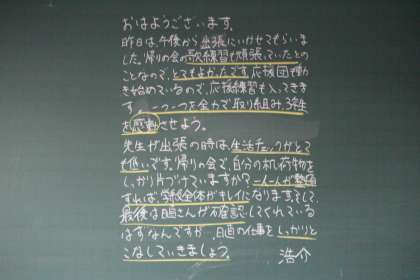 おはようございます。
昨日は、午後から出張にいかせてもらいま
した。帰りの会の歌練習も頑張っていたとの
ことなので、とてもよかったです。応援団も動
き始めているので、応援練習も入ってきま
す。一つ一つを全力で取り組み、3年生
を感動させよう。
先生が出張の時は、生活チェックがとて
も低いです。帰りの会で、自分の机、荷物を
しっかり片づけていますか?一人一人が整頓
すれば、学校全体がキレイになります。そして、
最後は日直さんが確認してくれている
はずなんですが…日直の仕事をしっかりと
こなしていきましょう。 浩介